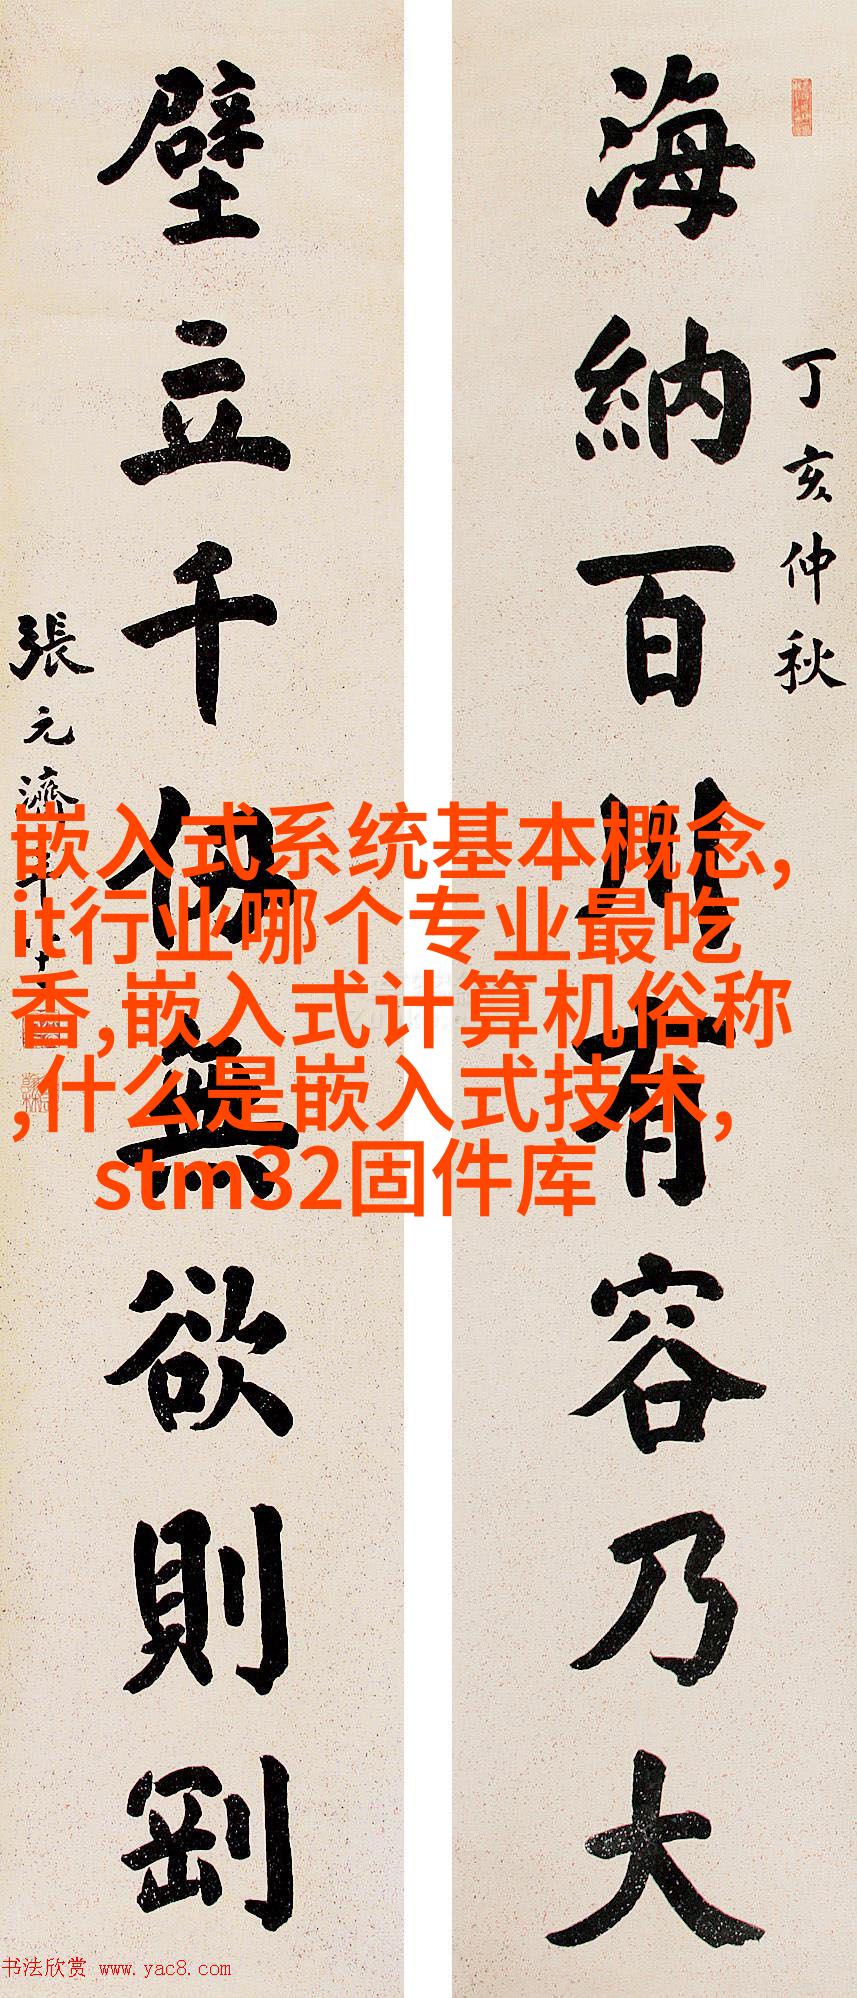 海納百川有容乃大
丁亥仲秋
壁立千仞無欲則剛
張元濟年八十一
嵌入式系统基本概念,
it行业哪个专业最吃
香,嵌入式计算机俗称
,什么是嵌入式技术,
stm32固件库
书法欣赏 www.yac8.com